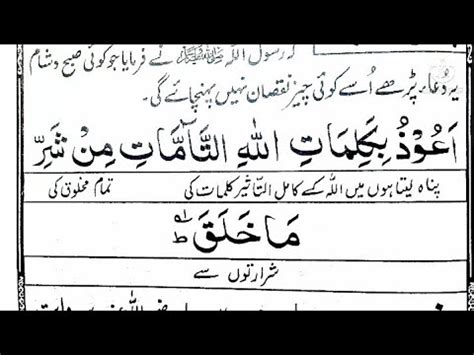 کہ رسول اللہ ﷺ نے فرمایا جو کوئی صبح و شام
یہ دُعا، پڑھے اُسے کوئی چیز نقصان نہیں پہنچائے گی۔
اَعُوْذُ بِکَلِمَاتِ اللہِ التَّآمَّاتِ مِنْ شَرِّ
پناہ لیتا ہوں میں اللہ کے کامل التّاثیر کلمات کی تمام مخلوق کی
مَا خَلَقَ
شرارتوں سے